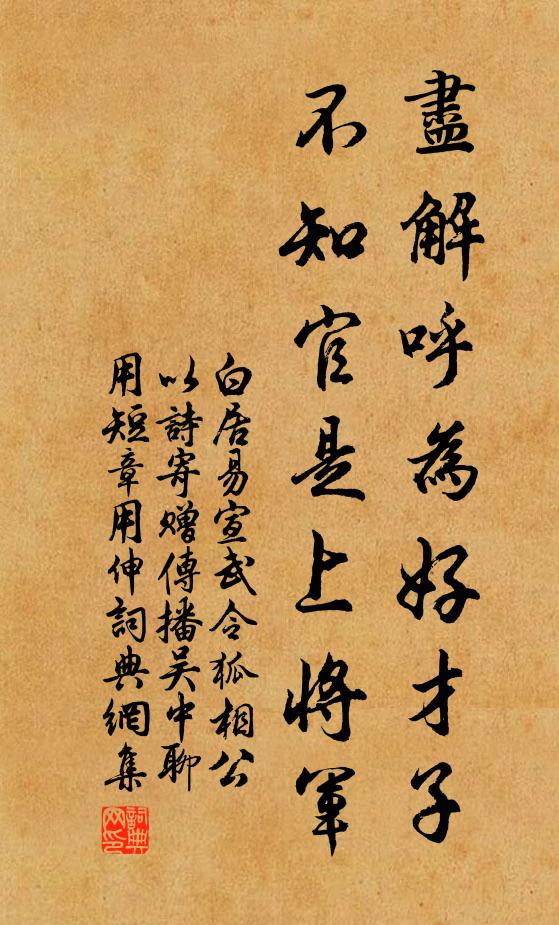 盡解呼為好才子
不知官是上將軍
白居易宣武令狐相公
以詩寄贈傳播吳中聊
用短章用伸詞典網集
詞典
网印